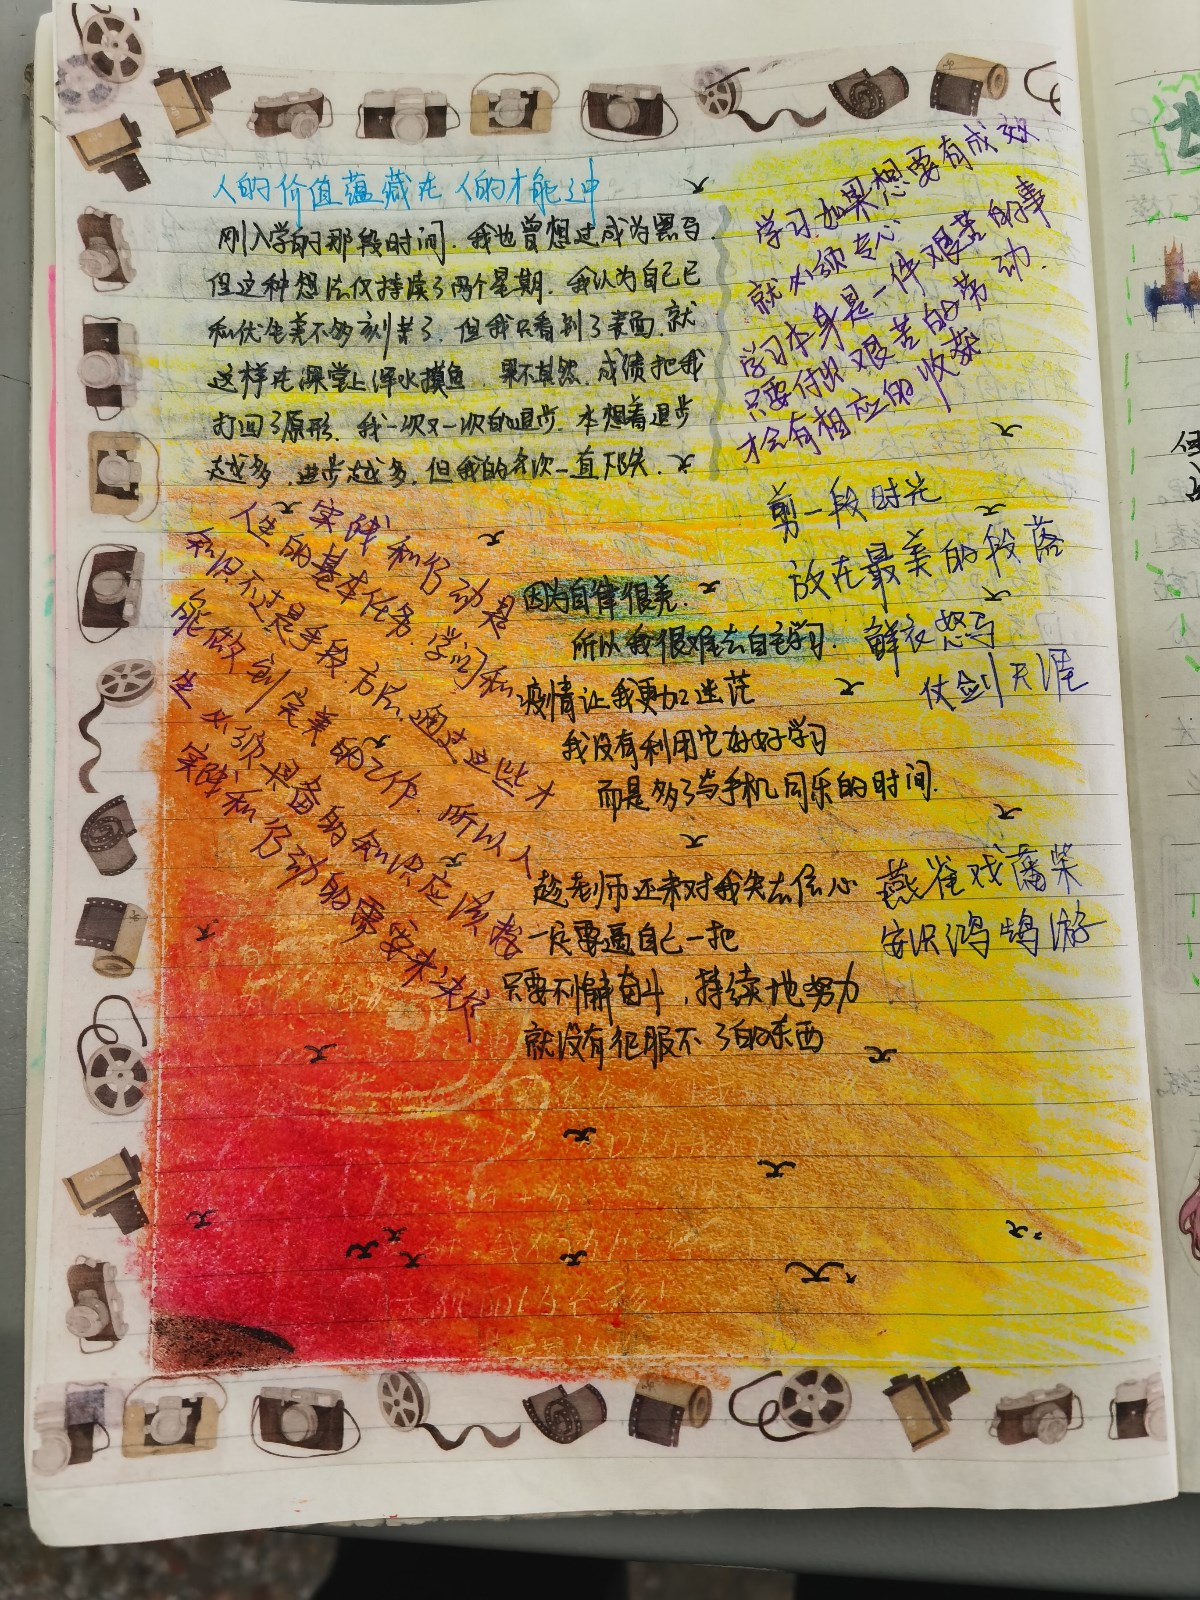 人的价值蕴藏在人的才能之中
刚入学的那段时间.我也曾想过成为黑马.
但这种想法仅持续了两个星期.我认为自己已
和优生差不多刻苦了.但我只看到了表面.就
这样在课堂上浑水摸鱼.果不其然.成绩把我
打回了原形.我一次又一次的退步.本想着退步
越多.进步越多.但我的名次一直下跌.
学习如果想要有成效
就必须专心
学习本身是一件艰苦的事
只要付出艰苦的劳动.
才会有相应的收获
剪一段时光
放在最美的段落
鲜衣怒马
仗剑天涯
实践和劳动是
人生的基本任务.学问和
知识不过是手段方法.通过这些才
能做到完美的工作.所以人
生必须具备的知识应该按
实践和劳动的需要来决定
因为自律很差.
所以我很难去自主学习.
疫情让我更加迷茫
我没有利用它好好学习
而是多了与手机同乐的时间.
趁老师还未对我失去信心
一定要逼自己一把
只要不懈奋斗.持续地努力
就没有征服不了的东西
燕雀戏藩柴
安识鸿鹄游